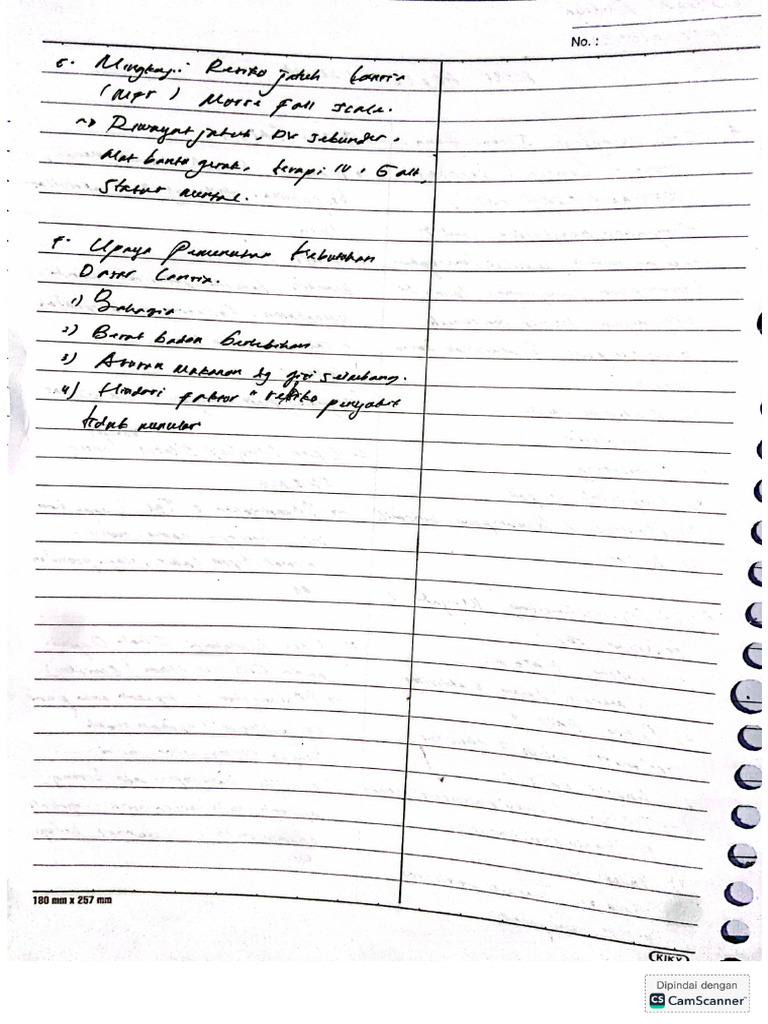 No. :
6. Mengkaji Resiko jatuh Lansia
(MFS) Morse Fall Scale.
~> Riwayat jatuh, DX sekunder,
Alat bantu gerak, terapi IV, Gait,
Status mental.
7. Upaya Pemenuhan Kebutuhan
Dasar Lansia.
1) Bahagia
2) Berat badan berlebihan
3) Asupan makanan dg gizi seimbang.
4) Hindari faktor " resiko penyakit
tidak menular
180 mm x 257 mm
KIKY
Dipindai dengan
CS CamScanner